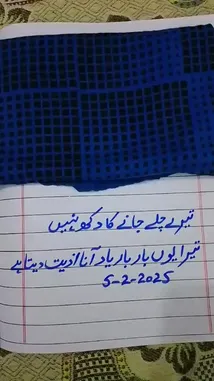 تیرے چلے جانے کا دکھ نہیں
تیرا یوں بار بار یاد آنا اذیت دیتا ہے
5-2-2025